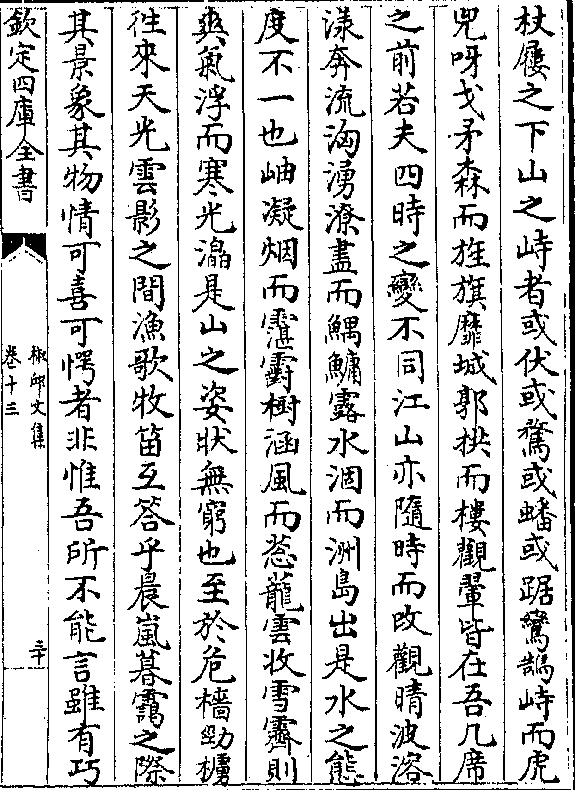 杖屨之下山之峙者或伏或騖或蟠或踞鸞鵠峙而虎
兕呀戈矛森而旌旗靡城郭拱而樓觀翬皆在吾几席
之前若夫四時之變不同江山亦隨時而改觀晴波溶
漾奔流洶湧潦盡而鰅鱅露水涸而洲島出是水之態
度不一也岫凝烟而霮䨴樹涵風而葱蘢雲收雪霽則
爽氣浮而寒光瀉是山之姿狀無窮也至於危檣勁櫓
往來天光雲影之間漁歌牧笛互答乎晨嵐暮靄之際
其景象其物情可喜可愕者非惟吾所不能言雖有巧
欽定四庫全書
椒邱文集
卷十三
二十